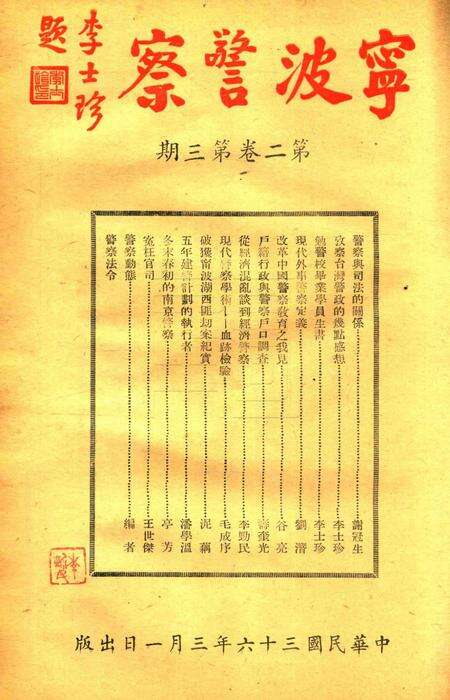 寧波警察
李士珍
題
第二卷第三期
警察與司法的關係 謝冠生
攷察台灣警政的幾點感想 李士珍
勉警校畢業學員生書 李士珍
現代外事警察定義 劉濳
改革中國警察教育之我見 谷亮
戶籍行政與警察戶口調查 壽棨光
從經濟混亂談到經濟警察 李勁民
現代警察學術——血跡檢驗 毛成序
破獲甯波湖西匪刧案紀實 泥藕
五年建警計劃的執行者 潘學溫
冬末春初的南京警察 亭芳
寃枉官司 王世傑
警察動態 編者
警察法令
中華民國三十六年三月一日出版